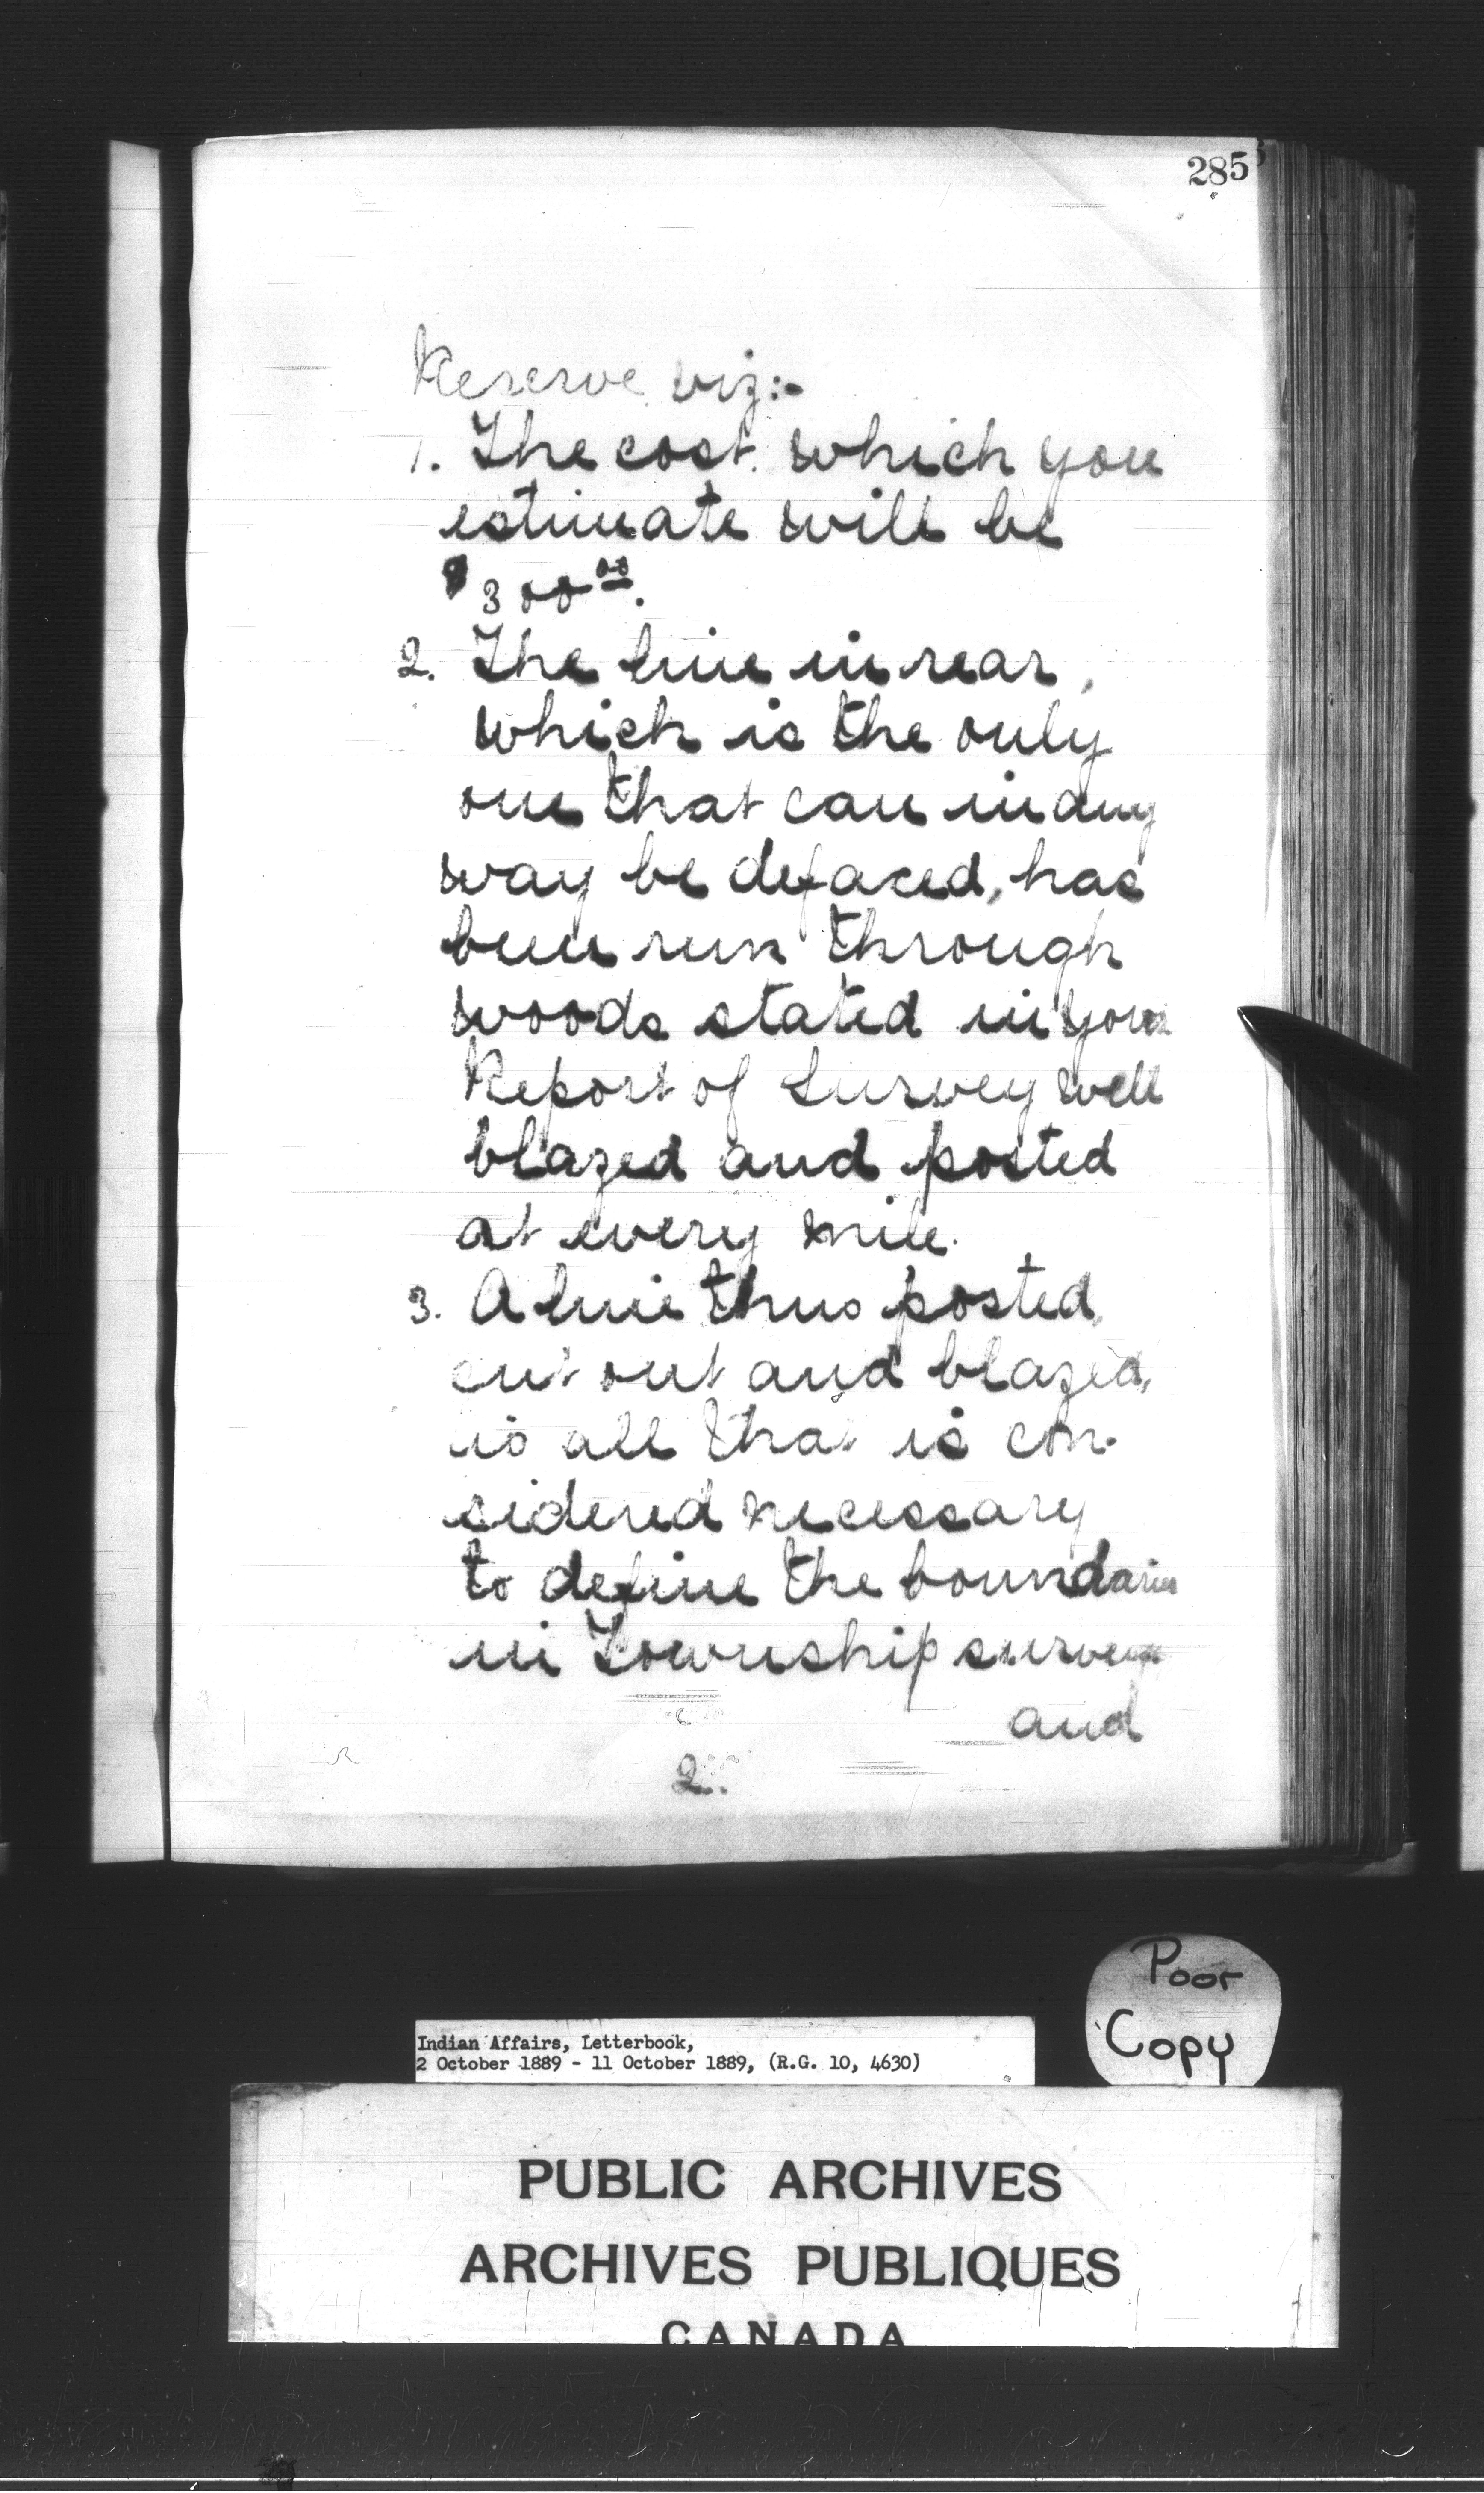 285
Reserve viz:-
1. The cost which you
estimate will be
$300⁰⁰.
2. The line in rear,
which is the only
one that can in any
way be defaced, has
been run through
woods stated in your
Report of Survey well
blazed and posted
at every mile.
3. A line thus posted,
cut out and blazed,
is all that is con-
sidered necessary
to define the boundaries
in Township surveys
and
2.
Poor
Copy
Indian Affairs, Letterbook,
2 October 1889 - 11 October 1889, (R.G. 10, 4630)
PUBLIC ARCHIVES
ARCHIVES PUBLIQUES
CANADA